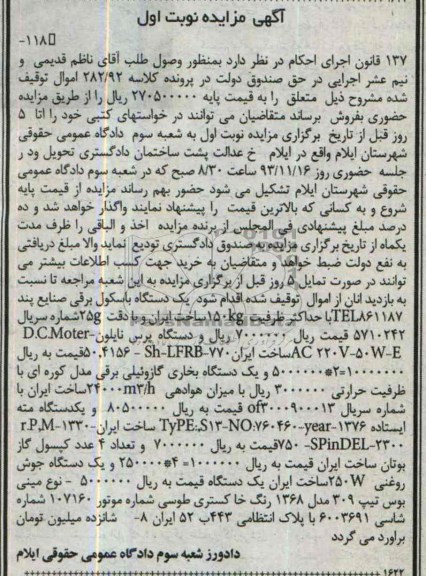 آگهی مزایده نوبت اول
118-
۱۳۷ قانون اجرای احکام در نظر دارد بمنظور وصول طلب آقای ناظم قدیمی و
نیم عشر اجرایی در حق صندوق دولت در پرونده کلاسه ۲۸۲/۹۲ اموال توقیف
شده مشروح ذیل متعلق را به قیمت پایه ۲۷۰۵۰۰۰۰۰ ریال را از طریق مزایده
حضوری بفروش برساند متقاضیان می توانند در خواستهای کتبی خود را اتا ۵
روز قبل از تاریخ برگزاری مزایده نوبت اول به شعبه سوم دادگاه عمومی حقوقی
شهرستان ایلام واقع در ایلام خ عدالت پشت ساختمان دادگستری تحویل ود ر
جلسه حضوری روز ۹۳/۱۱/۱۶ ساعت ۸/۳۰ صبح که در شعبه سوم دادگاه عمومی
حقوقی شهرستان ایلام تشکیل می شود حضور بهم رساند مزایده از قیمت پایه
شروع و به کسانی که بالاترین قیمت را پیشنهاد نمایند واگذار خواهد شد و ده
درصد مبلغ پیشنهادی فی المجلس از برنده مزایده اخذ و الباقی را ظرف مدت
یکماه از تاریخ برگزاری مزایده به صندوق دادگستری تودیع نماید والا مبلغ دریافتی
به نفع دولت ضبط خواهد و متقاضیان به خرید جهت کسب اطلاعات بیشتر می
توانند در صورت تمایل ۵ روز قبل از برگزاری مزایده به این شعبه مراجعه تا نسبت
به بازدید انان از اموال توقیف شده اقدام شود یک دستگاه باسکول برقی صنایع پند
TEL۸۶۱۱۸۷با حداکثر ظرفیت ۱۵۰kgساخت ایران و با دقت ۲۵gشماره سریال
۵۷۱۰۲۴۲ قیمت ریال ۷۰۰۰۰۰۰ ریال و دستگاه پرس نایلون-D.C.Moter
AC ۲۲۰V-۵۰W-Eساخت ایران۷۷۰-Sh-LFRB - ۵۰.۴۱۵۶قیمت به ریال
۱۰۰۰۰۰۰۰=۲*۵۰۰۰۰۰۰ و یک دستگاه بخاری گازوئیلی برقی مدل کوره ای با
ظرفیت حرارتی ۳۰۰۰۰۰۰ ریال با میزان هوادهی ۲۴۰۰۰m۳/hساخت ایران با
شماره سریال of۳۰۰۹۰۰۰۱۳ قیمت به ریال ۸۰۵۰۰۰۰۰ و یکدستگاه مته
ایستاده ۱۳۷۶-TyPE:,S۱۳-NO:۷۶۰۴۶۰-year ساخت ایران-۱۳۳۰-r.P,M
۲۳۰۰-SPinDEL-۷۵۰قیمت به ریال ۷۰۰۰۰۰۰ و تعداد ۴ عدد کپسول گاز
بوتان ساخت ایران قیمت به ریال ۱۰۰۰۰۰۰= ۴*۲۵۰۰۰۰ و یک دستگاه جوش
روغنی ۲۵۰Wساخت ایران یک دستگاه قیمت به ریال ۵۰۰۰۰۰۰ - نوع مینی
بوس تیپ ۳۰۹ مدل ۱۳۶۸ رنگ خا کستری طوسی شماره موتور ۱۰۷۱۶۰ شماره
شاسی ۶۰۰۳۶۹۱ با پلاک انتظامی ۴۴۳ب ۵۲ ایران ۸- شانزده میلیون تومان
براورد می گردد
دادورز شعبه سوم دادگاه عمومی حقوقی ایلام
۱۶۲۲